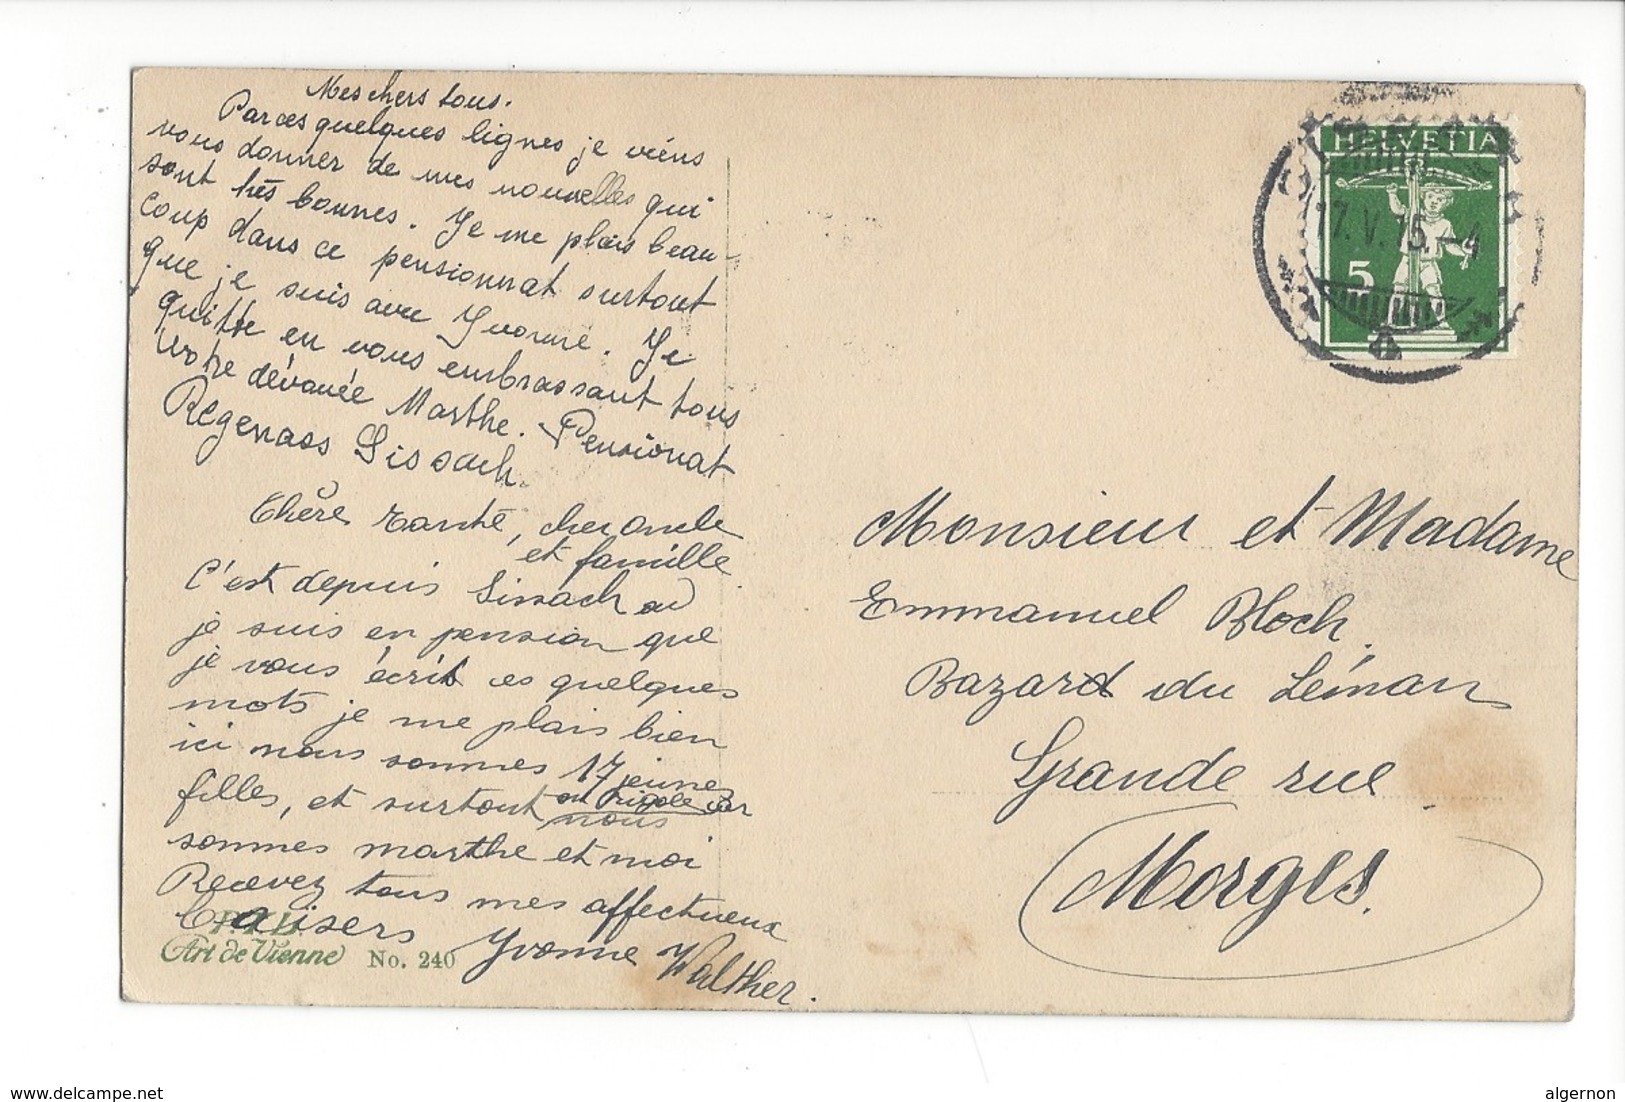 Mes chers tous.
Par ces quelques lignes je viens
vous donner de mes nouvelles qui
sont très bonnes. Je me plais beau-
coup dans ce pensionnat surtout
que je suis avec Yvonne. Je
quitte en vous embrassant tous
Votre dévouée Marthe. Pensionat
Regenass Sissach.
Chère tante, cher oncle
et famille
C'est depuis Sissach où
je suis en pension que
je vous écris ces quelques
mots je me plais bien
ici nous sommes 17 jeunes
filles, et surtout on rigole car
nous
sommes marthe et moi
Recevez tous mes affectueux
baisers Yvonne Walther.
Art de Vienne No. 240
HELVETIA
17.V.15.-4
5
Monsieur et Madame
Emmanuel Bloch.
Bazard du Léman
Grande rue
Morges.
delcampe.net
algernon